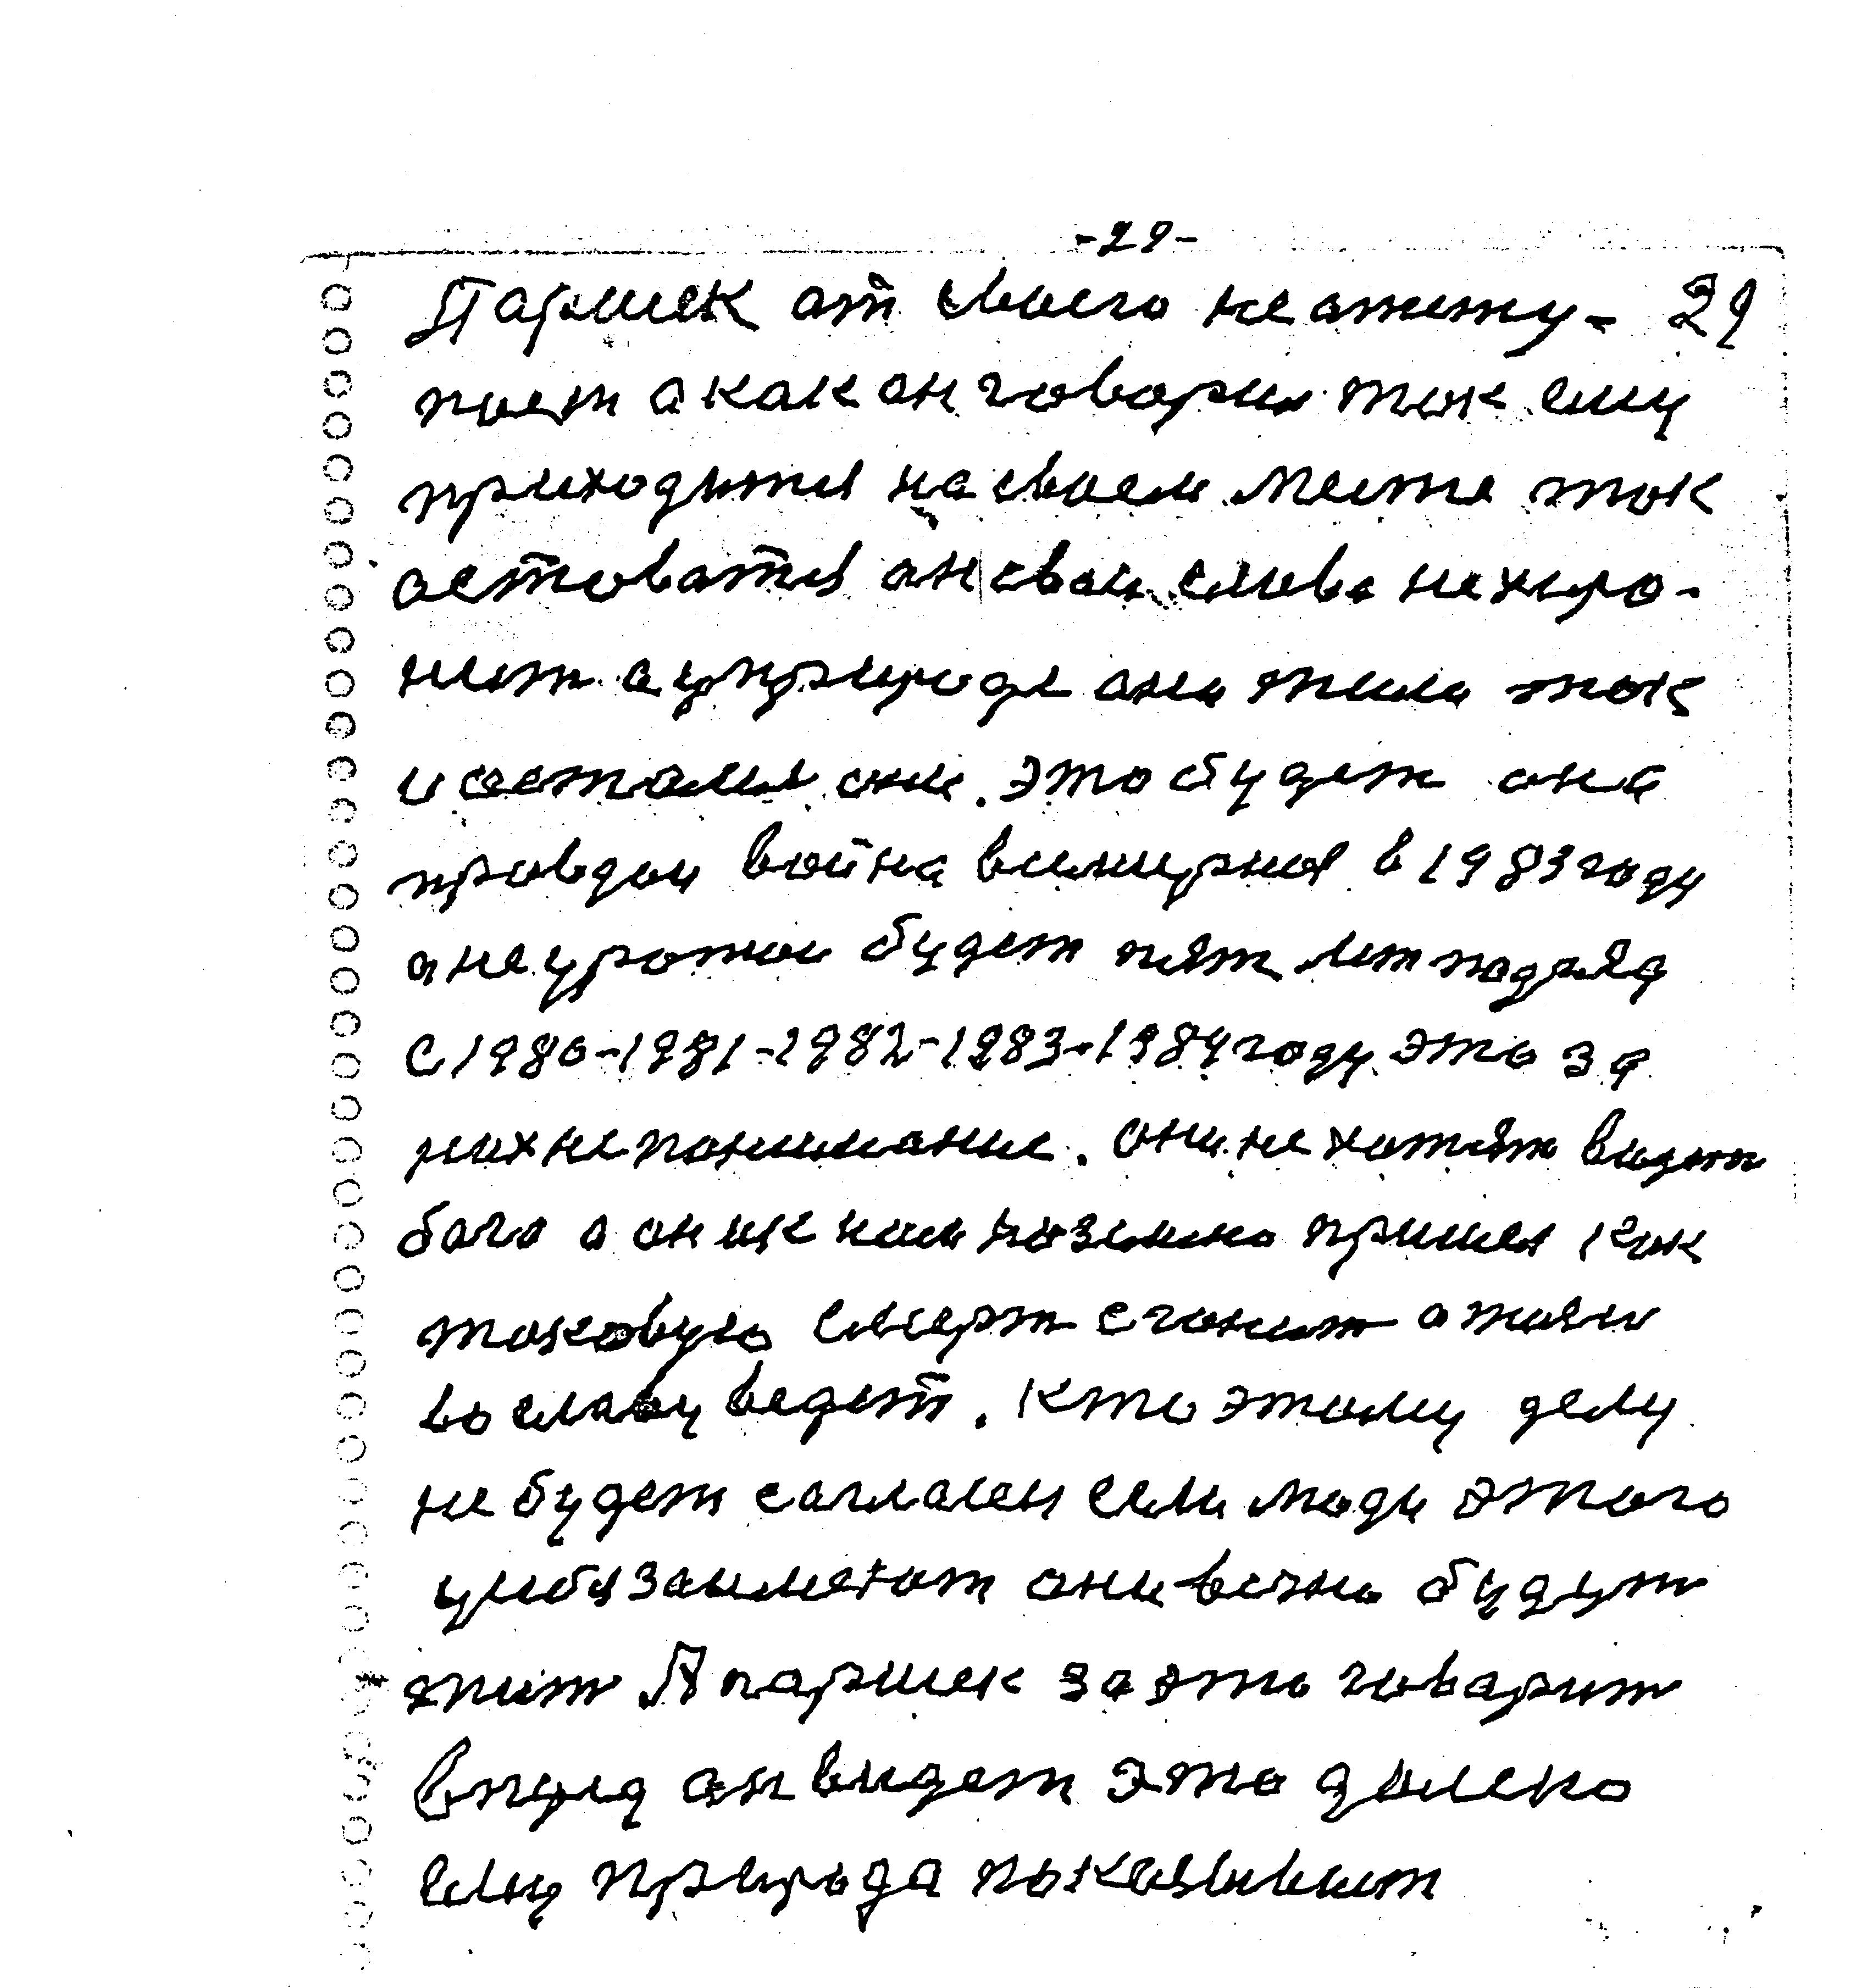 -29-
Паршек от своего не отсту- 29
поет а как он говорил так ему
приходится на своем месте так
оставатся он свои слова не хоро-
нит а у природе они жили так
и остались они. это будет она
правдой война всимирная в 1983 году
а не урожаи будет пят лет подряд
С 1980-1981-1982-1983-1984 году. это за
них не понимание. они не хотят видет
бога а он их к нам на землю пришел как
таковую смерт сгонит а жизн
во славу ведет. кто этому делу
не будет согласен если люди этого
у себя займеют они вечно будут
жит А паршек за это говорит
вперед он видет это далеко
ему природа показывает